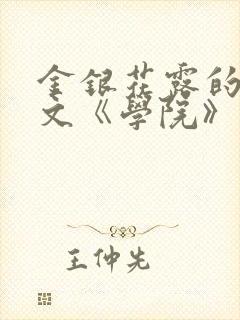 金銀花露的
文《學院》
王仲先